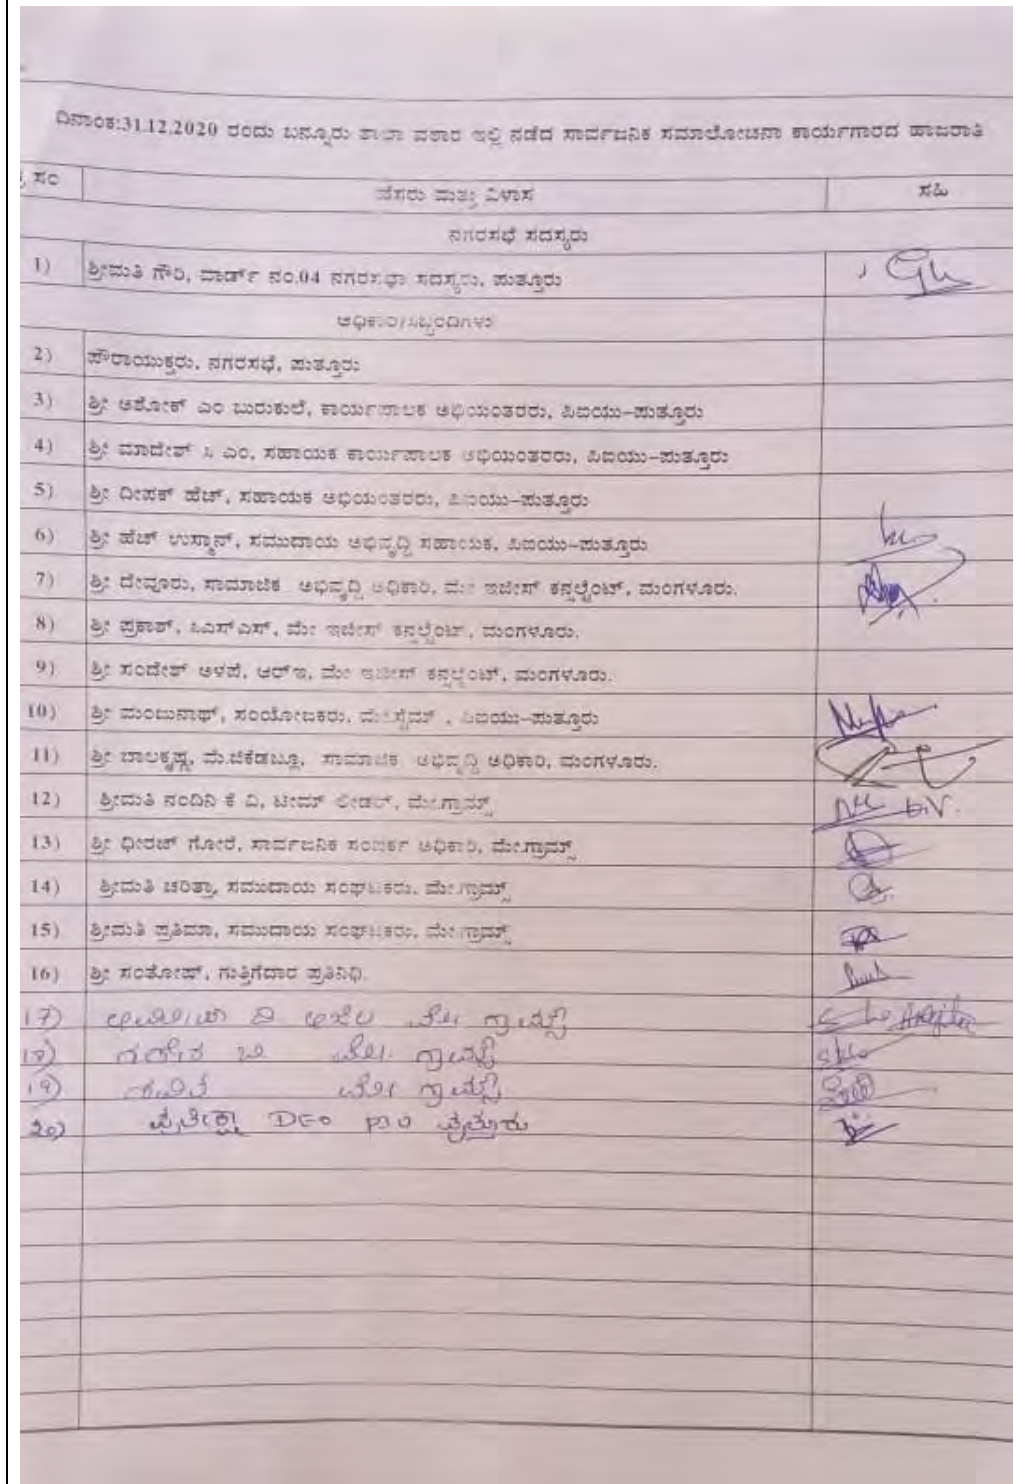 ದಿನಾಂಕ:31.12.2020 ರಂದು ಬನ್ನೂರು ಶಾಲಾ ವಠಾರ ಇಲ್ಲಿ ನಡೆದ ಸಾರ್ವಜನಿಕ ಸಮಾಲೋಚನಾ ಕಾರ್ಯಗಾರದ ಹಾಜರಾತಿ
ಸಂ ಹೆಸರು ಮತ್ತು ವಿಳಾಸ ಸಹಿ
ನಗರಸಭೆ ಸದಸ್ಯರು
1) ಶ್ರೀಮತಿ ಗೌರಿ, ವಾರ್ಡ್ ನಂ.04 ನಗರಸಭಾ ಸದಸ್ಯರು, ಪುತ್ತೂರು
ಅಧಿಕಾರಿ/ಸಿಬ್ಬಂದಿಗಳು
2) ಪೌರಾಯುಕ್ತರು, ನಗರಸಭೆ, ಪುತ್ತೂರು
3) ಶ್ರೀ ಅಶೋಕ್ ಎಂ ಬುರುಕುಲೆ, ಕಾರ್ಯಪಾಲಕ ಅಭಿಯಂತರರು, ಪಿಐಯು-ಪುತ್ತೂರು
4) ಶ್ರೀ ಮಾದೇಶ್ ಸಿ ಎಂ, ಸಹಾಯಕ ಕಾರ್ಯಪಾಲಕ ಅಭಿಯಂತರರು, ಪಿಐಯು-ಪುತ್ತೂರು
5) ಶ್ರೀ ದೀಪಕ್ ಹೆಚ್, ಸಹಾಯಕ ಅಭಿಯಂತರರು, ಪಿಐಯು-ಪುತ್ತೂರು
6) ಶ್ರೀ ಹೆಚ್ ಉಸ್ಮಾನ್, ಸಮುದಾಯ ಅಭಿವೃದ್ಧಿ ಸಹಾಯಕ, ಪಿಐಯು-ಪುತ್ತೂರು
7) ಶ್ರೀ ದೇವೂರು, ಸಾಮಾಜಿಕ ಅಭಿವೃದ್ಧಿ ಅಧಿಕಾರಿ, ಮೇ ಇಜೀಸ್ ಕನ್ಸಲ್ಟೆಂಟ್, ಮಂಗಳೂರು.
8) ಶ್ರೀ ಪ್ರಕಾಶ್, ಸಿಎಸ್‌ಎಸ್, ಮೇ ಇಜೀಸ್ ಕನ್ಸಲ್ಟೆಂಟ್, ಮಂಗಳೂರು.
9) ಶ್ರೀ ಸಂದೇಶ್ ಅಳಪೆ, ಆರ್‌ಇ, ಮೇ ಇಜೀಸ್ ಕನ್ಸಲ್ಟೆಂಟ್, ಮಂಗಳೂರು.
10) ಶ್ರೀ ಮಂಜುನಾಥ್, ಸಂಯೋಜಕರು, ಪಿಐಯು-ಪುತ್ತೂರು
11) ಶ್ರೀ ಬಾಲಕೃಷ್ಣ, ಮೆ.ಜಿಕೆಡಬ್ಲೂ, ಸಾಮಾಜಿಕ ಅಭಿವೃದ್ಧಿ ಅಧಿಕಾರಿ, ಮಂಗಳೂರು.
12) ಶ್ರೀಮತಿ ನಂದಿನಿ ಕೆ ವಿ, ಟೀಮ್ ಲೀಡರ್, ಮೇ.ಗ್ರಾಮ್ಸ್
13) ಶ್ರೀ ಧೀರಜ್ ಗೋರೆ, ಸಾರ್ವಜನಿಕ ಸಂಪರ್ಕ ಅಧಿಕಾರಿ, ಮೇ.ಗ್ರಾಮ್ಸ್
14) ಶ್ರೀಮತಿ ಚರಿತ್ರಾ, ಸಮುದಾಯ ಸಂಘಟಕರು, ಮೇ.ಗ್ರಾಮ್ಸ್
15) ಶ್ರೀಮತಿ ಪ್ರತಿಮಾ, ಸಮುದಾಯ ಸಂಘಟಕರು, ಮೇ.ಗ್ರಾಮ್ಸ್
16) ಶ್ರೀ ಸಂತೋಷ್, ಗುತ್ತಿಗೆದಾರ ಪ್ರತಿನಿಧಿ.
17) ಮೇ ಗ್ರಾಮ್ಸ್
18) ಬಿ ಮೇ. ಗ್ರಾಮ್ಸ್
19) ಕವಿತ ಮೇ ಗ್ರಾಮ್ಸ್
20) ಪ್ರತೀಕ್ಷಾ DEO PIU ಪುತ್ತೂರು